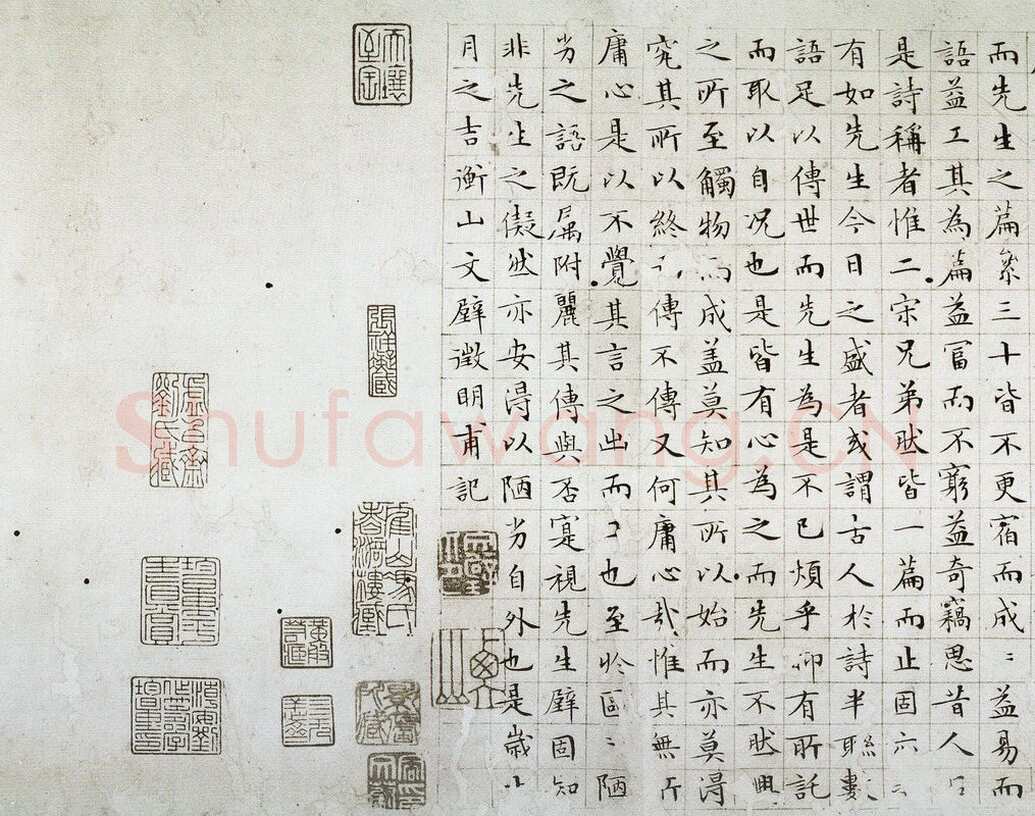 而先生之篇纍三十皆不更宿而成〻益易而
語益工其為篇益富而不窮益奇竊思昔人
是詩稱者惟二宋兄弟然皆一篇而止固
有如先生今日之盛者或謂古人於詩半聯數
語足以傳世而先生為是不已煩乎抑有所託
而取以自況也是皆有心為之而先生不然興
之所至觸物而成蓋莫知其所以始而亦莫得
究其所以終傳不傳又何庸心哉惟其無所
庸心是以不覺其言之出而工也至於區〻陋
劣之語既屬附麗其傳與否寔視先生壁固知
非先生之儗然亦安得以陋劣自外也是歲十
月之吉衡山文壁徵明甫記
Shufawang.CN